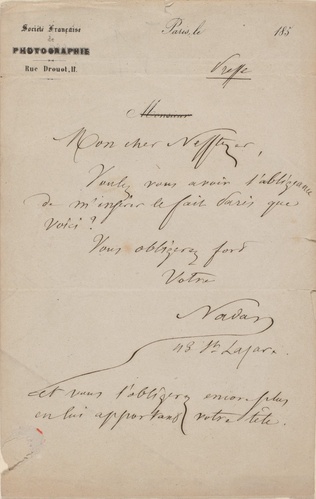 Société Française
de
PHOTOGRAPHIE
Rue Drouot, 11.
Paris, le 185
Presse
Monsieur
Mon cher Nefftzer,
Voulez vous avoir l'obligeance
de m'insérer le fait Paris que
voici?
Vous obligerez fort
Votre
Nadar
113 St Lazare.
et vous l'obligerez encore plus
en lui apportant votre tête.